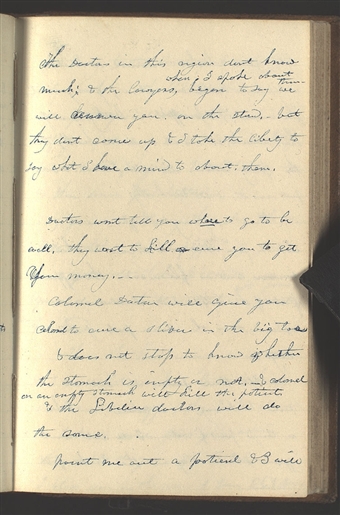 The Doctors in this region dont know
when I spoke about them
much; & the lawyers, began to say we
will answer you, on the stand, but
they dont come up & I take the liberty to
say what I have a mind to about them.
Doctors wont tell you where to go to be
well, they want to kill or cure you to get
your money.
Colomel Doctor will give you
to cure a sliver in the big toe
& does not stop to know whether
the stomach is empty or not, & colomel
on an empty stomach will kill the patient
& the doctors will do
the same.
point me out a patient & B will